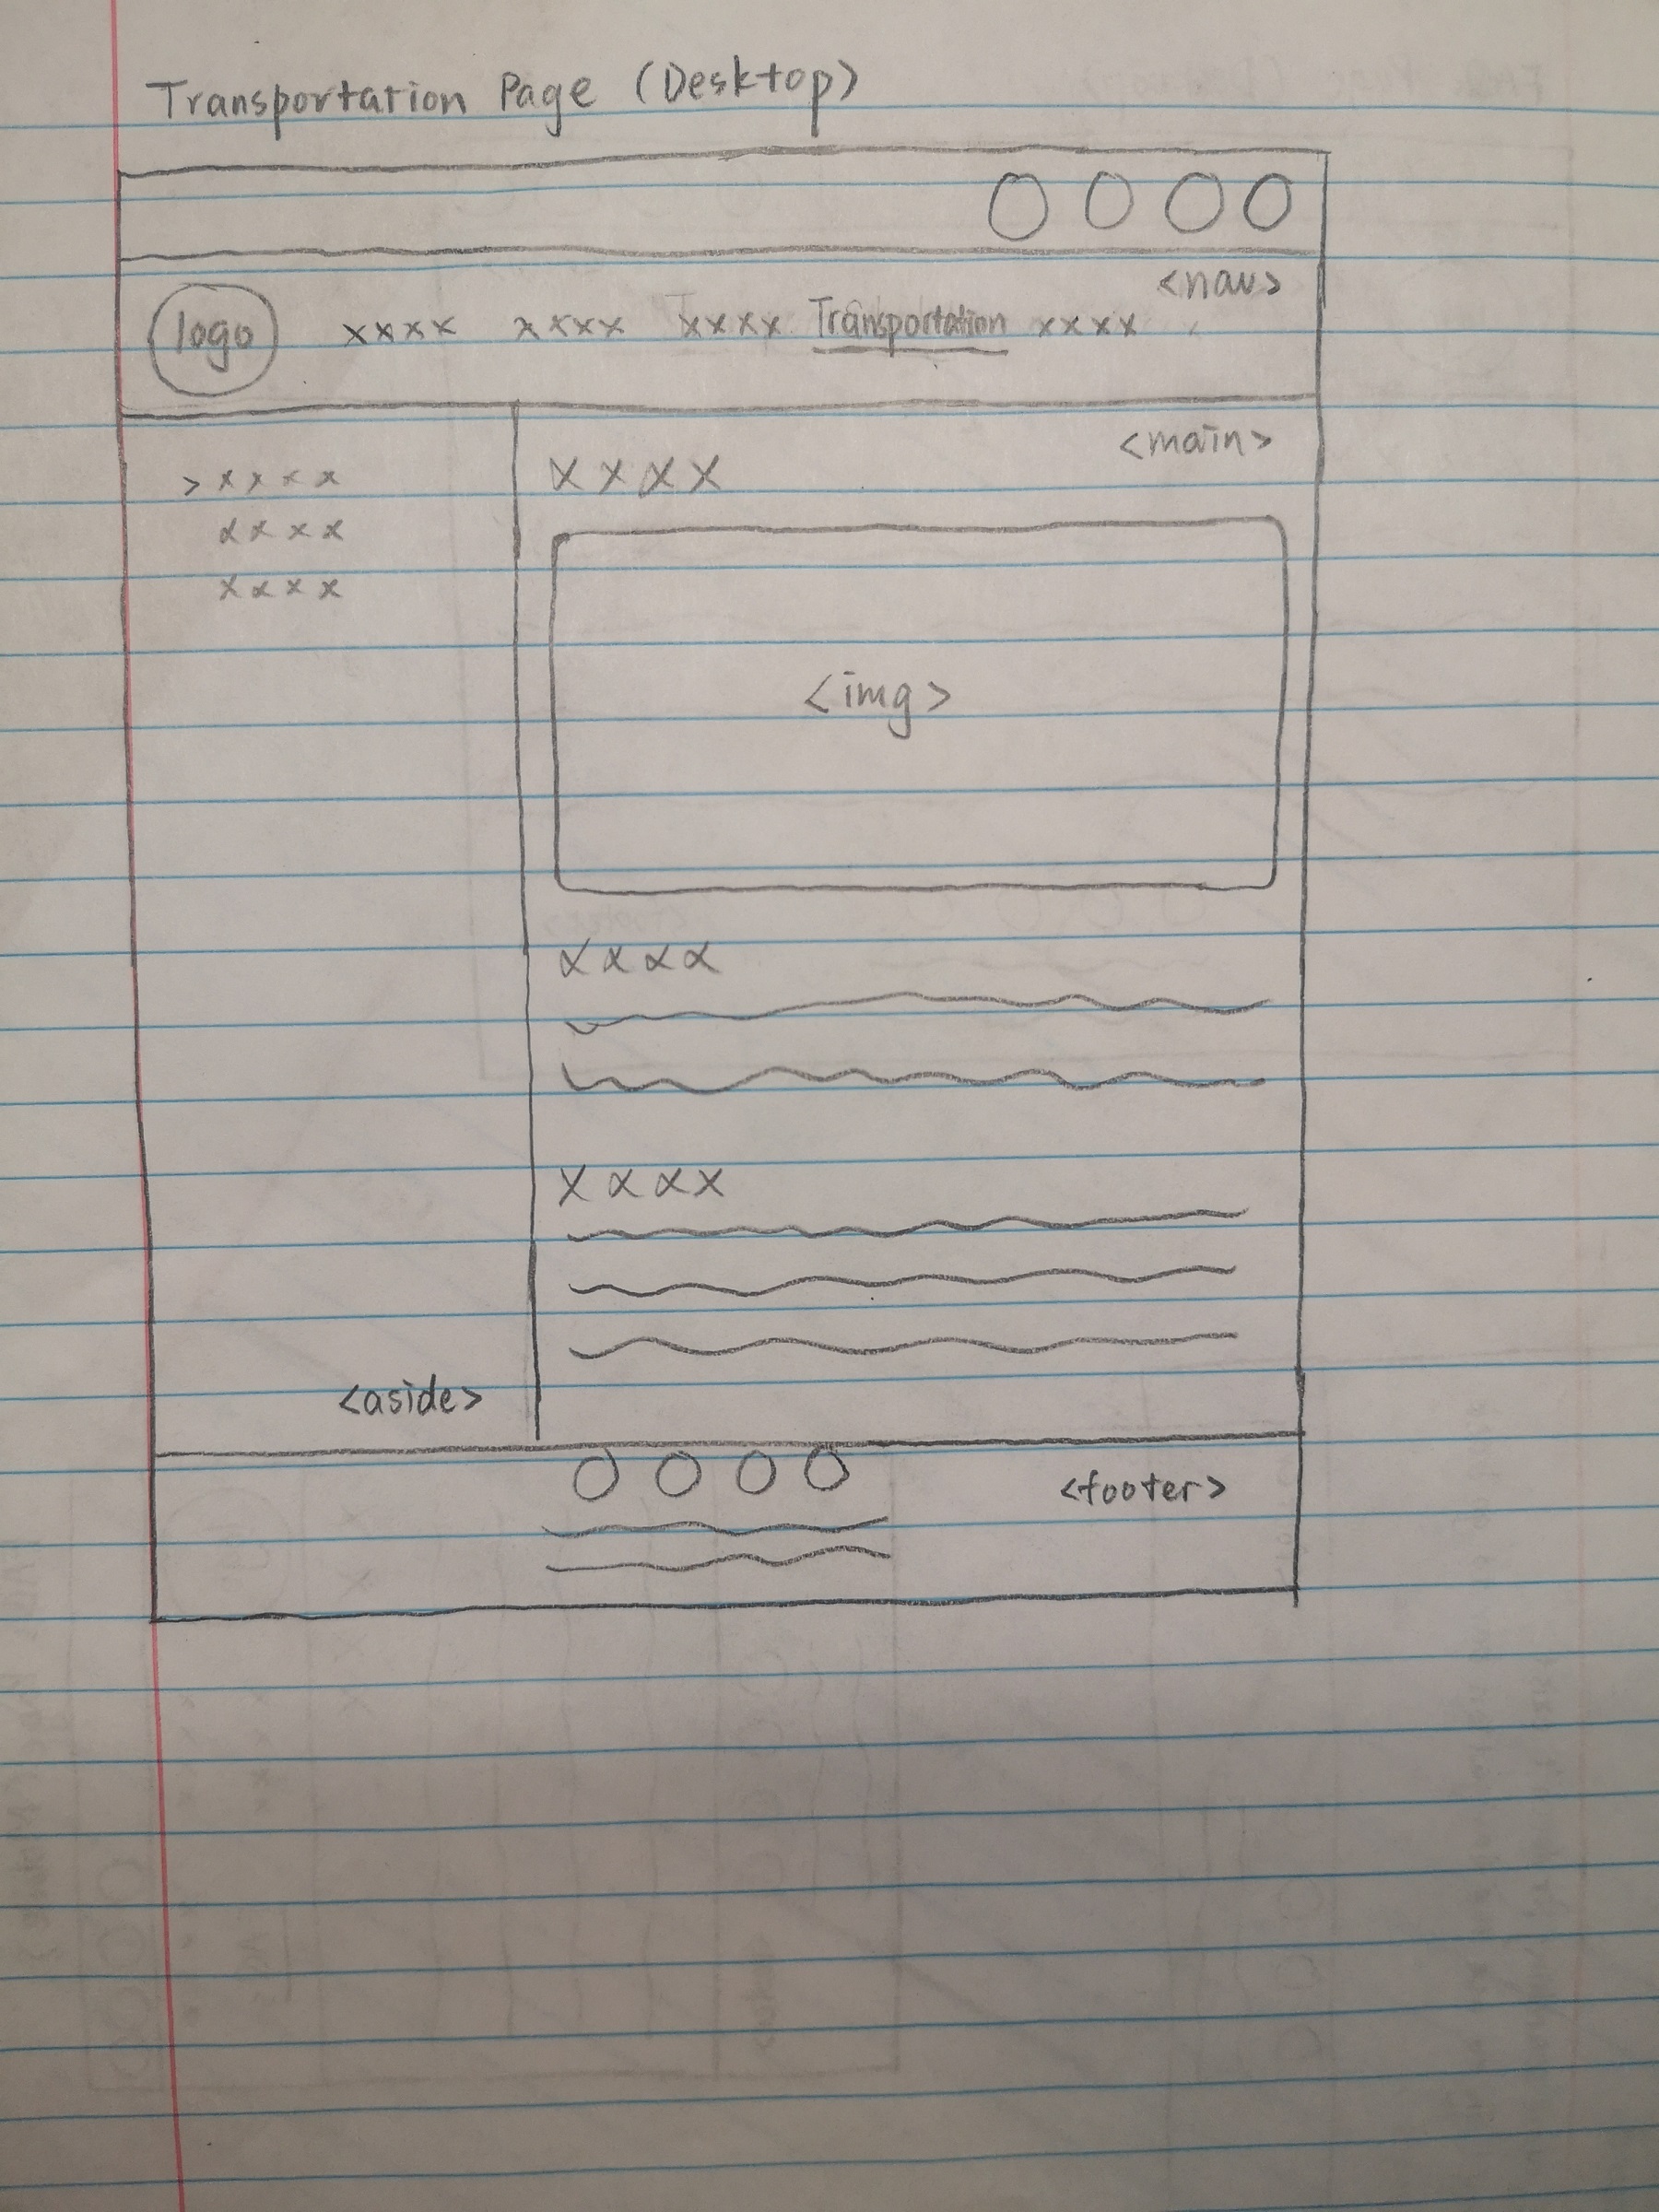 Transportation Page (Desktop)
<nav>
logo xxxx xxxx xxxx Transportation xxxx
<main>
> xxxx
xxxx
xxxx
xxxx
<img>
xxxx
xxxx
<aside>
<footer>